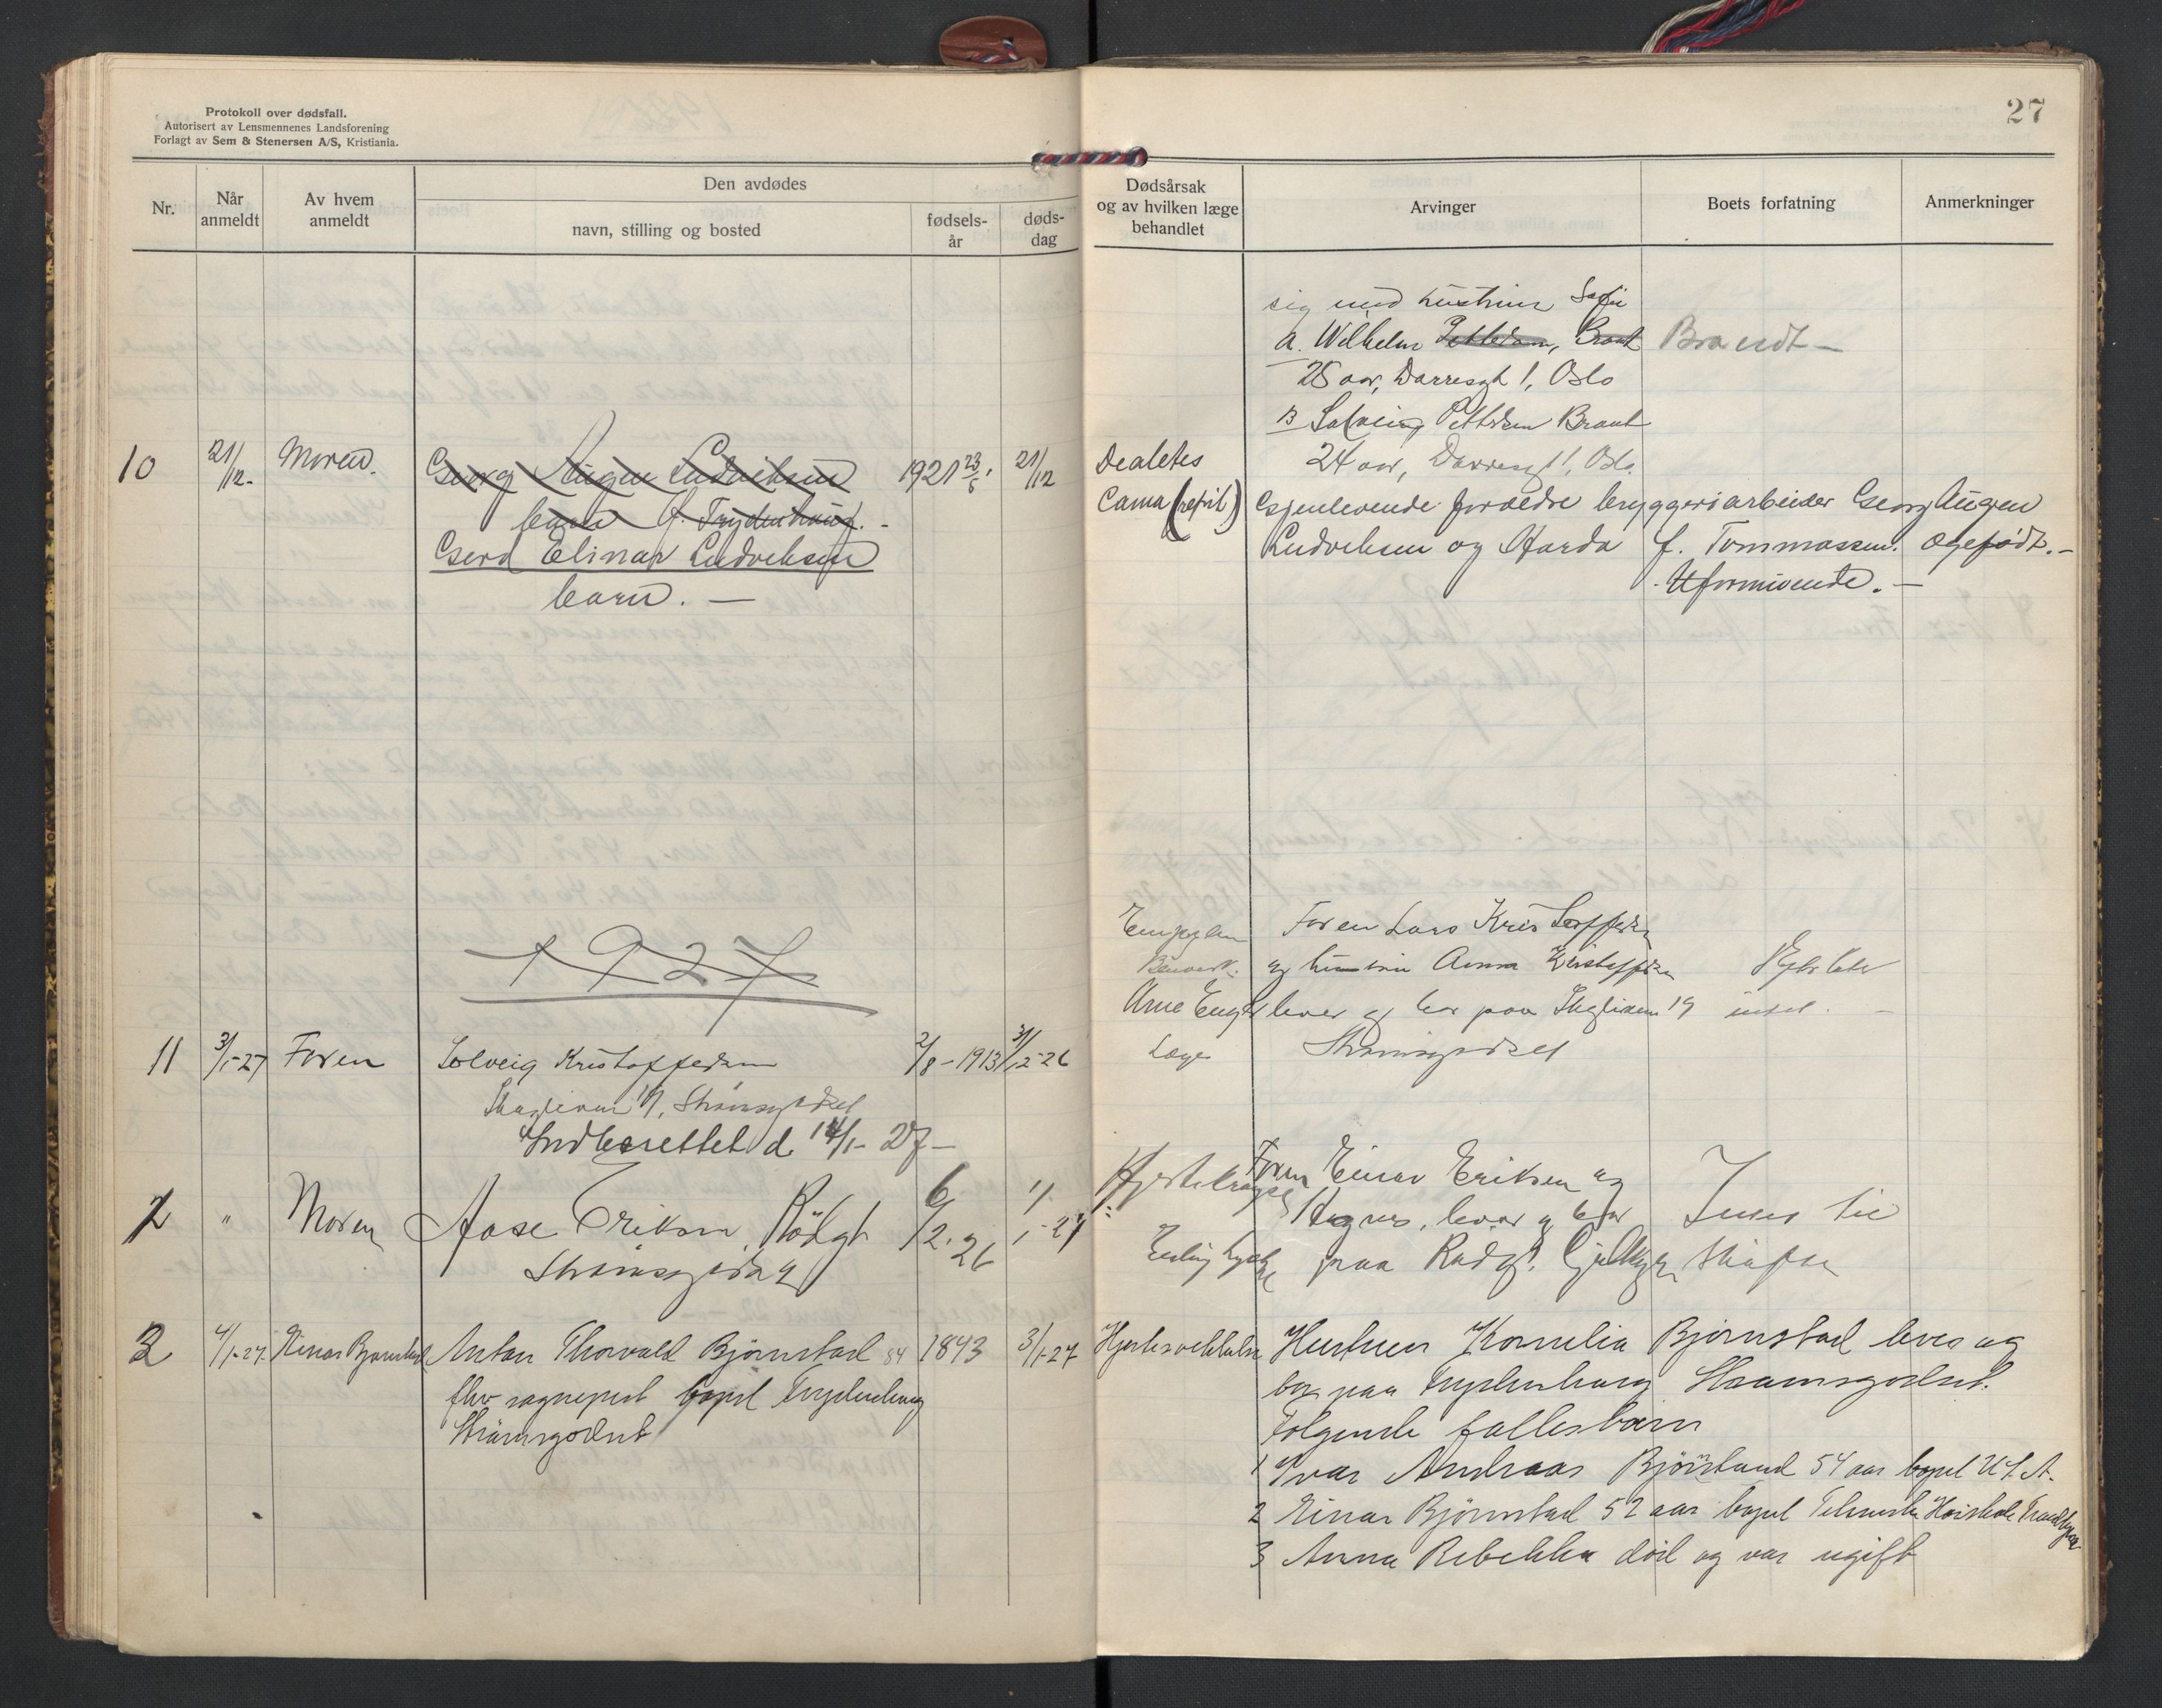 Protokoll over dødsfall.
Autorisert av Lensmennenes Landsforening
Forlagt av Sem & Stenersen A/S, Kristiania.
27
Nr.
Når anmeldt
Av hvem anmeldt
Den avdødes
navn, stilling og bosted
fødsels-år
døds-dag
Dødsårsak og av hvilken læge behandlet
Arvinger
Boets forfatning
Anmerkninger
sig med hustrue
a. Wilhelm Brant Brandt —
25 aar, Darresgt 1, Oslo
B Solveig Pettersen Brant
24 aar, Darresgt 1, Oslo
10 21/12. Moren. Georg Augen Ludviksen 1921 23/5. 21/12
barn
Gerd Elinar Ludviksen
barn. —
Dealetes
Cama Gjenlevende foreldre bryggeriarbeider Georg Augen
Ludviksen og Harda f. Tommassen.
Uformuende. —
1927
Faren Lars Kristoffersen
og hustru Anna Kristoffersen
Arne Engh lever og bor paa 19 intet.
Læge Strømsgodset
11 3/1-27 Faren Solveig Kristoffersen 2/8-1913 31/12-26
Strømsgodset
Indberettet d. 14/1- 27 —
Faren Einar Eriksen og
2 " Moren Aase Eriksen, Rødgt 6/2.26 1/1-27 Hjertekrampe Agnes, lever og bor Intet til
Strømsgodset
paa Rødgt. Skifte
3 4/1-27. Einar Bjørnstad Anton Thorvald Bjørnstad 84 1843 3/1-27 Hjertesvekkelse Hustruen Kornelia Bjørnstad lever og
bor paa Frydenhaug Strømsgodset.
bopel Frydenhaug
Strømsgodset
Følgende fellesbarn
1 Ivar Andreas Bjørnstad 54 aar bopel U.S.A.
2 Einar Bjørnstad 52 aar bopel Tekniske Høiskole Trondhjem
3 Anna Rebekka død og var ugift